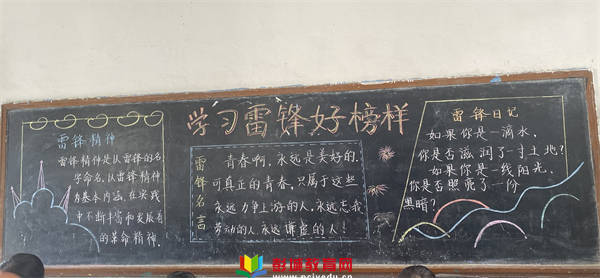 学习雷锋好榜样
雷锋精神
雷锋精神是以雷锋的名
字命名,以雷锋精神
为基本内涵,在实践
中不断丰富和发展着
的革命精神.
雷锋名言
青春啊,永远是美好的.
可真正的青春,只属于这些
永远力争上游的人,永远忘我
劳动的人,永远谦虚的人!
雷锋日记
如果你是一滴水,
你是否滋润了一寸土地?
如果你是一线阳光,
你是否照亮了一份
黑暗?
彭城教育网
www.pcjyedu.cn